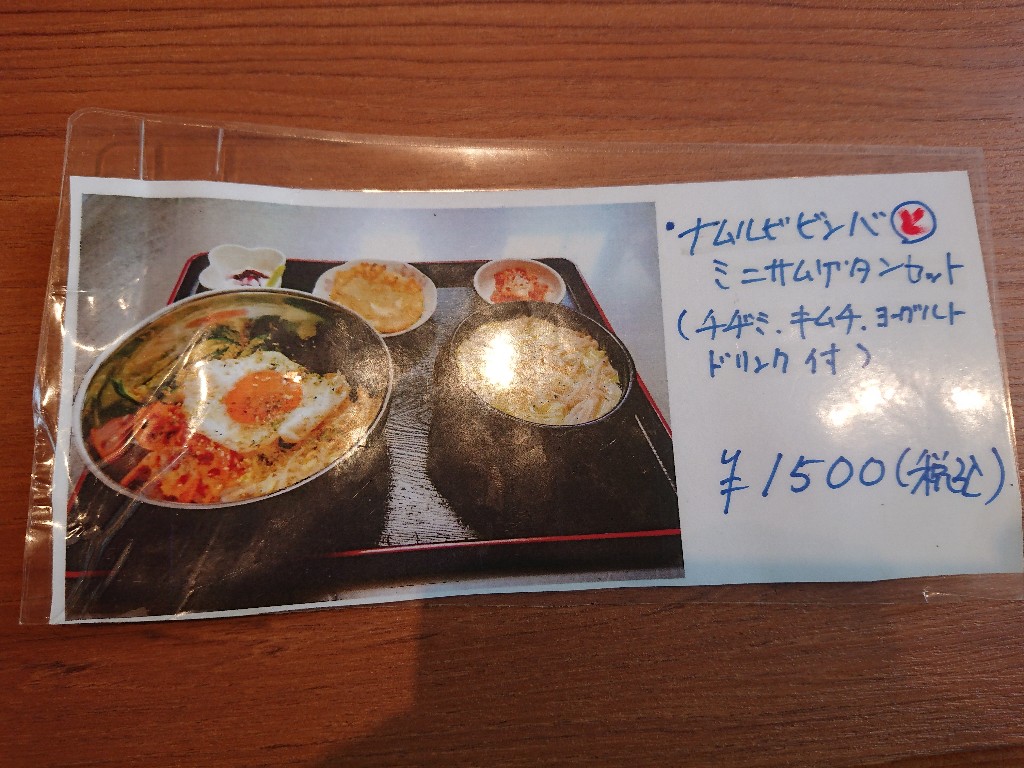 ・ナムルビビンバと
ミニサムゲタンセット
(チヂミ、キムチ、ヨーグルト
ドリンク付)
¥1500(税込)